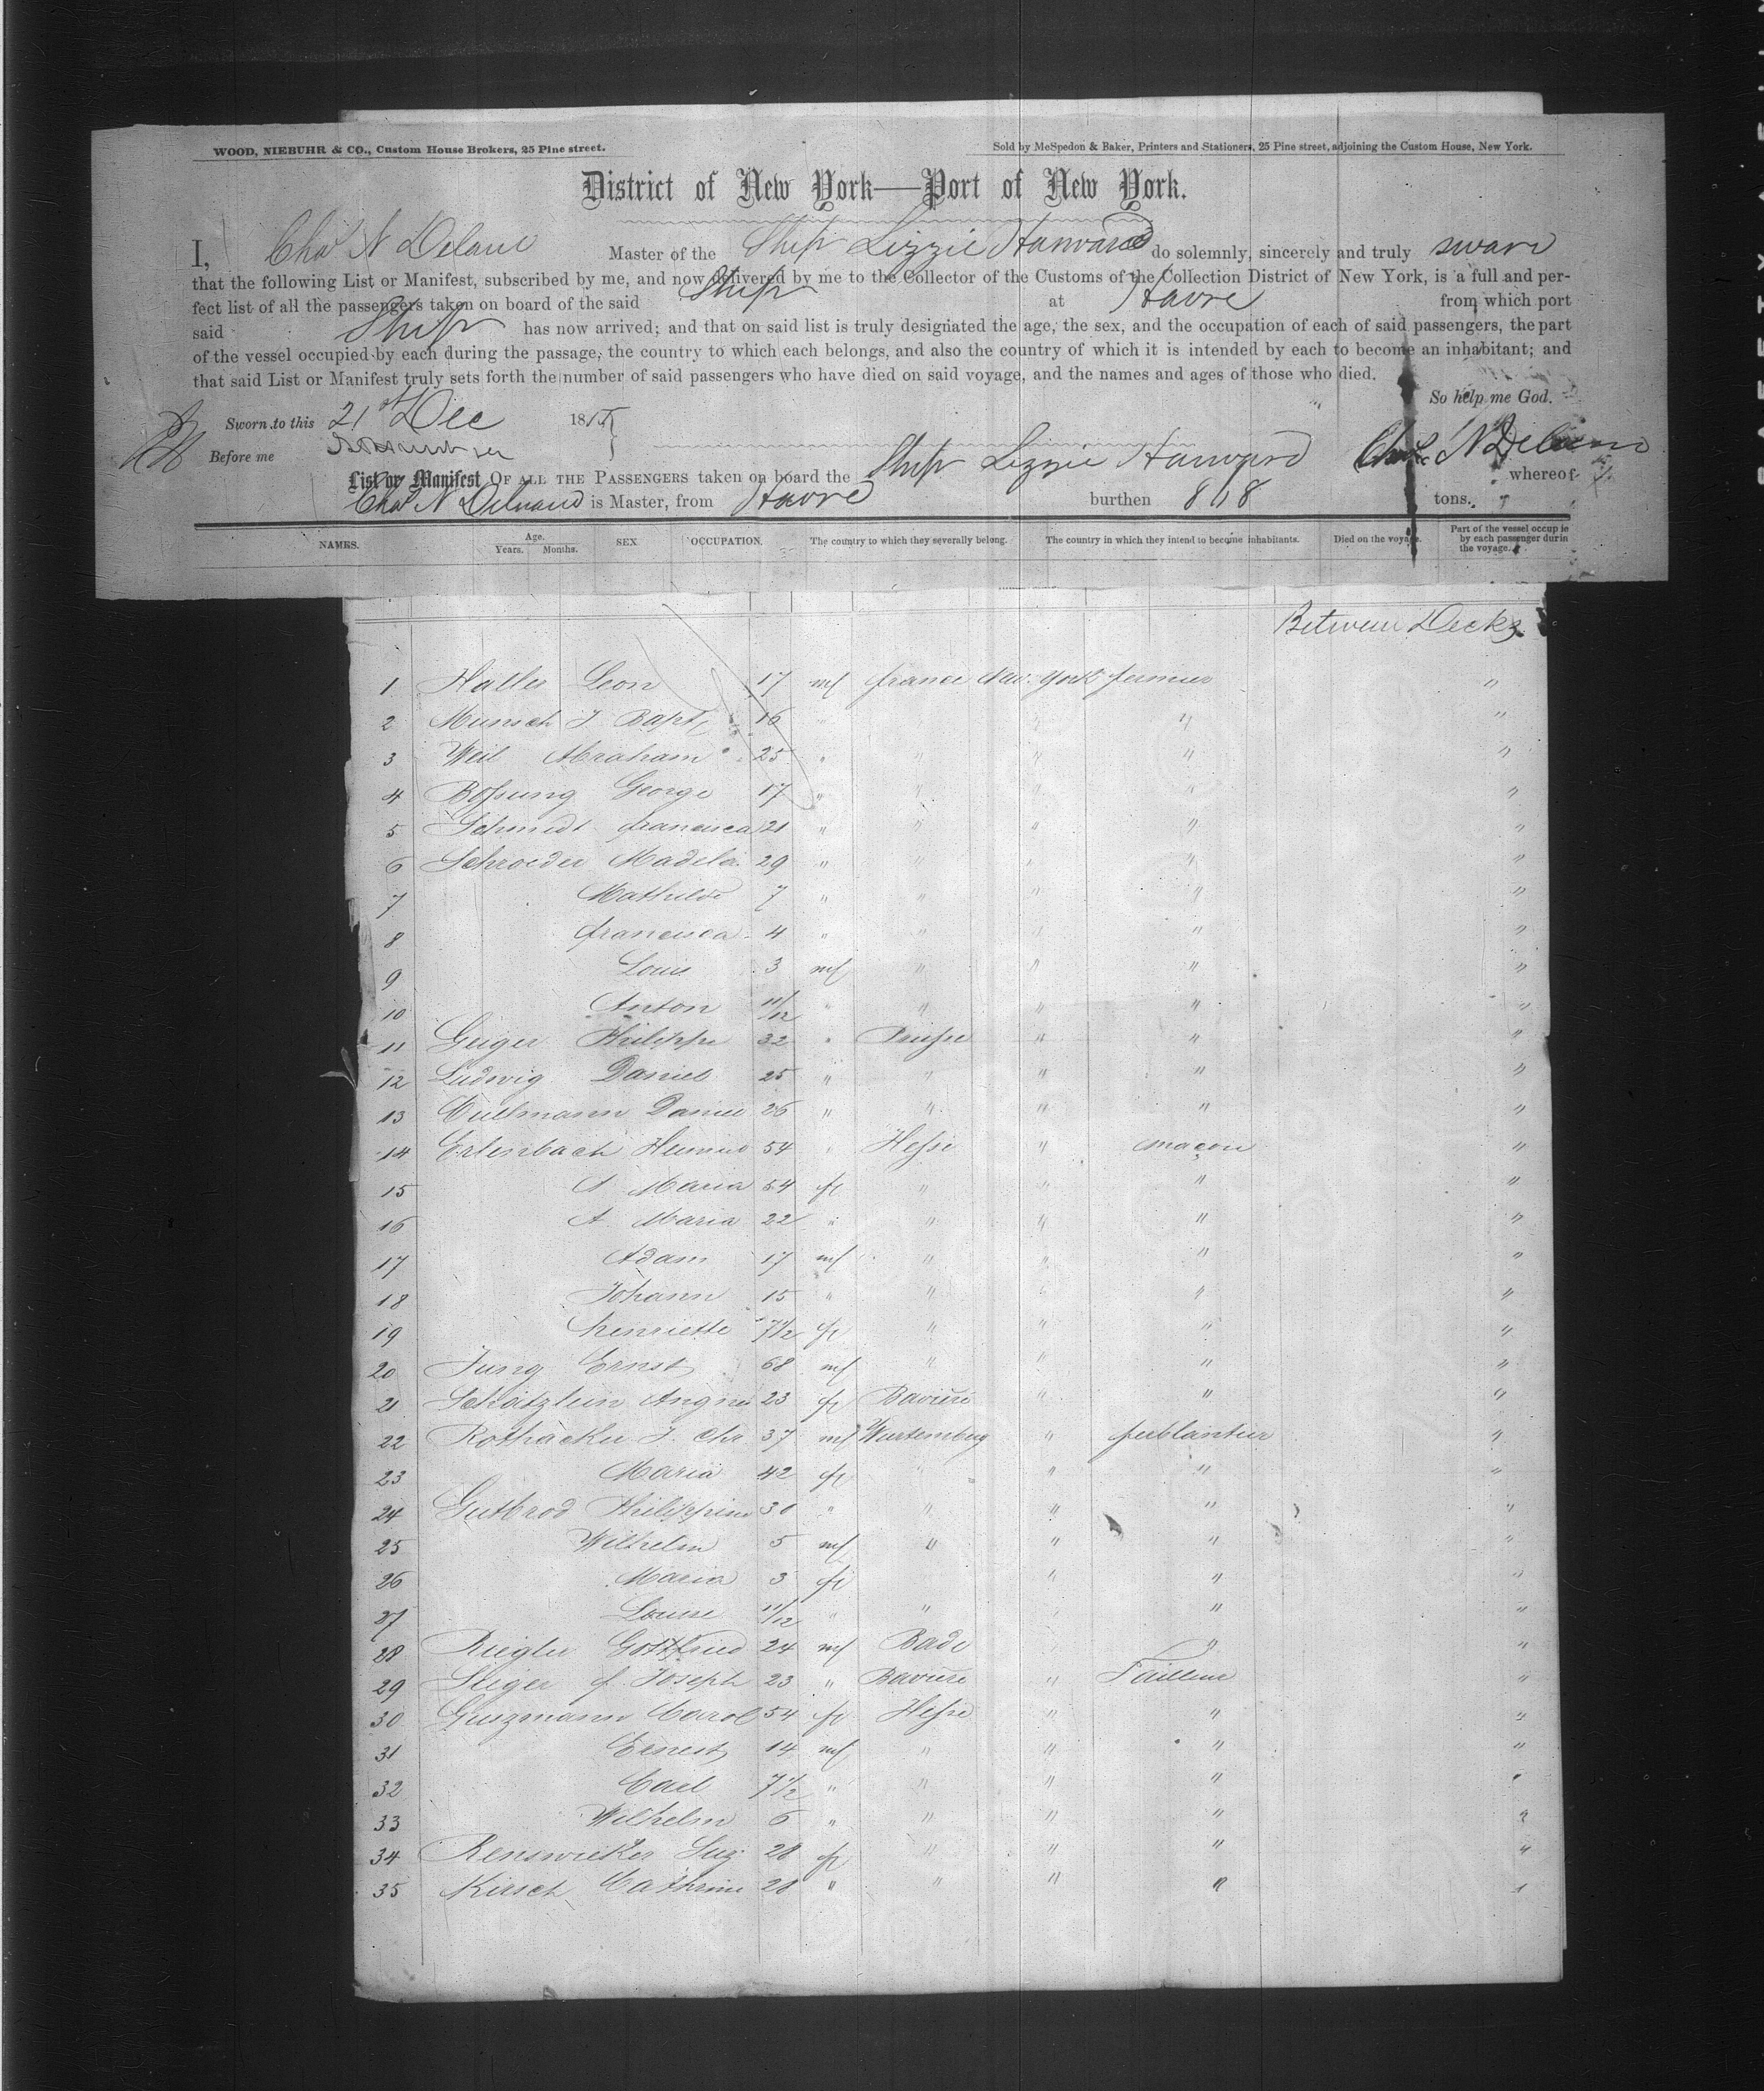 WOOD, NIEBUHR & CO., Custom House Brokers, 25 Pine street.
Sold by McSpedon & Baker, Printers and Stationers, 25 Pine street, adjoining the Custom House, New York.
District of New York—Port of New York.
I, Chas N Delano Master of the Ship Lizzie Harward do solemnly, sincerely and truly swear
that the following List or Manifest, subscribed by me, and now delivered by me to the Collector of the Customs of the Collection District of New York, is a full and per-
fect list of all the passengers taken on board of the said Ship at Havre from which port
said Ship has now arrived; and that on said list is truly designated the age, the sex, and the occupation of each of said passengers, the part
of the vessel occupied by each during the passage, the country to which each belongs, and also the country of which it is intended by each to become an inhabitant; and
that said List or Manifest truly sets forth the number of said passengers who have died on said voyage, and the names and ages of those who died.
So help me God.
Sworn to this 21st Dec 185
Before me
Chas N Delano
List or Manifest OF ALL THE PASSENGERS taken on board the Ship Lizzie Harward whereof
Chas N Delano is Master, from Havre burthen 8 8 tons.
NAMES. Age. Years. Months. SEX. OCCUPATION. The country to which they severally belong. The country in which they intend to become inhabitants. Died on the voyage. Part of the vessel occup ie by each passenger durin the voyage.
Between Decks
1 Haller Leon 17 m france New York fermier "
2 Munsch J Bapt 16 " " " "
3 Weil Abraham 25 " " " " "
4 Bossung George 17 " " " " "
5 Schmidt francisca 21 " " " " "
6 Schroeder Madele. 29 " " " " "
7 Mathilde 7 " " " " "
8 francisca 4 " " " " "
9 Louis 3 m " " " "
10 Anton 11/12 " " " " "
11 Geiger Philippe 32 " Prusse " " "
12 Ludwig Daniel 25 " " " " "
13 Cullmann Daniel 26 " " " " "
14 Erlenbach 54 " Hesse " maçon "
15 A Maria 54 f " " " "
16 A. Maria 22 " " " " "
17 Adam 17 m " " " "
18 Johann 15 " " " " "
19 henriette 7 1/2 f " " " "
20 Jung Ernst 68 m " " " "
21 Schätzlein 23 f Baviere " " "
22 Rothacker J. Chr 37 m Wurtemberg " ferblantier "
23 Maria 42 f " " " "
24 Gutbrod Philippine 30 " " " " "
25 Wilhelm 5 m " " " "
26 Maria 3 f " " "
27 Louise 11/12 " " " "
28 Riegler Gottfried 24 m Bade " "
29 Steiger f. Joseph 23 " Baviere " Tailleur "
30 Carol 54 f Hesse " " "
31 Ernest 14 m " " " "
32 Carl 7 1/2 " " " " "
33 Wilhelm 6 " " " " "
34 Renswicker Suz 28 f " " " "
35 Kirsch Cathrine 28 " " " " "